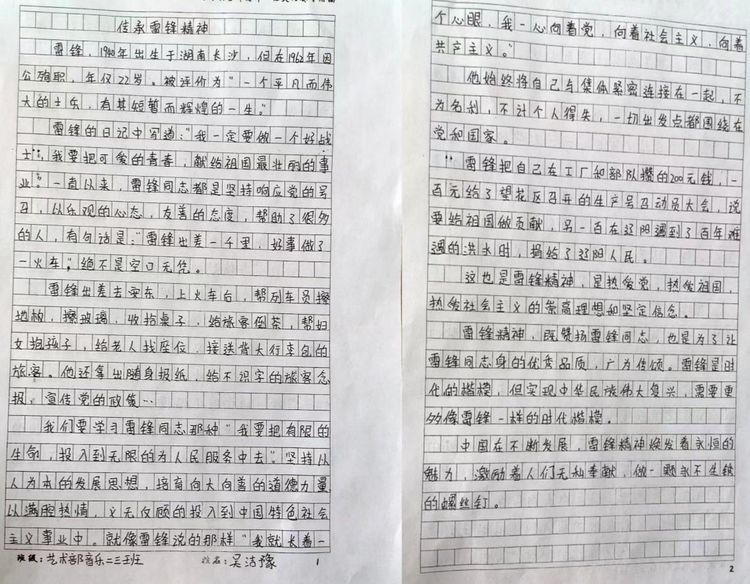 传承雷锋精神
雷锋，1940年出生于湖南长沙，但在1962年因
公殉职，年仅22岁。被评价为“一个平凡而伟
大的士兵，有其短暂而辉煌的一生。”
雷锋的日记中写道：“我一定要做一个好战
士”，“我要把可爱的青春，献给祖国最壮丽的事
业”。一直以来，雷锋同志都是坚持响应党的号
召，以乐观的心态，友善的态度，帮助了很多
的人，有句话是：“雷锋出差一千里，好事做了
一火车”，绝不是空口无凭。
雷锋出差去安东，上火车台，帮列车员擦
地板，擦玻璃，收拾桌子，给旅客倒茶，帮妇
女抱孩子，给老人找座位，接送背大行李包的
旅客。他还拿出随身报纸，给不识字的旅客念
报，宣传党的政策…
我们要学习雷锋同志那种“我要把有限的
生命，投入到无限的为人民服务中去”。坚持以
人为本的发展思想，培育向上向善的道德力量，
以满腔热情，义无反顾的投入到中国特色社会
主义事业中。就像雷锋说的那样“我就长着一
班级：艺术部音乐二三班 姓名：吴洁豫 1
个心眼，我一心向着党，向着社会主义，向着
共产主义。”
他始终将自己与集体紧密连接在一起，不
为名利，不计个人得失，一切出发点都围绕在
党和国家。
雷锋把自己在工厂和部队攒的200元钱，一
百元给了望花区召开的生产号召动员大会，说
要给祖国做贡献，另一百在辽阳遇到了百年难
遇的洪水时，捐给了辽阳人民。
这也是雷锋精神，是热爱党，热爱祖国，
热爱社会主义的崇高理想和坚定信念。
雷锋精神，既赞扬雷锋同志，也是为了让
雷锋同志身的优秀品质，广为传颂。雷锋是时
代的楷模，但实现中华民族伟大复兴，需要更
多像雷锋一样的时代楷模。
中国在不断发展，雷锋精神焕发着永恒的
魅力，激励着人们无私奉献，做一颗永不生锈
的螺丝钉。
2